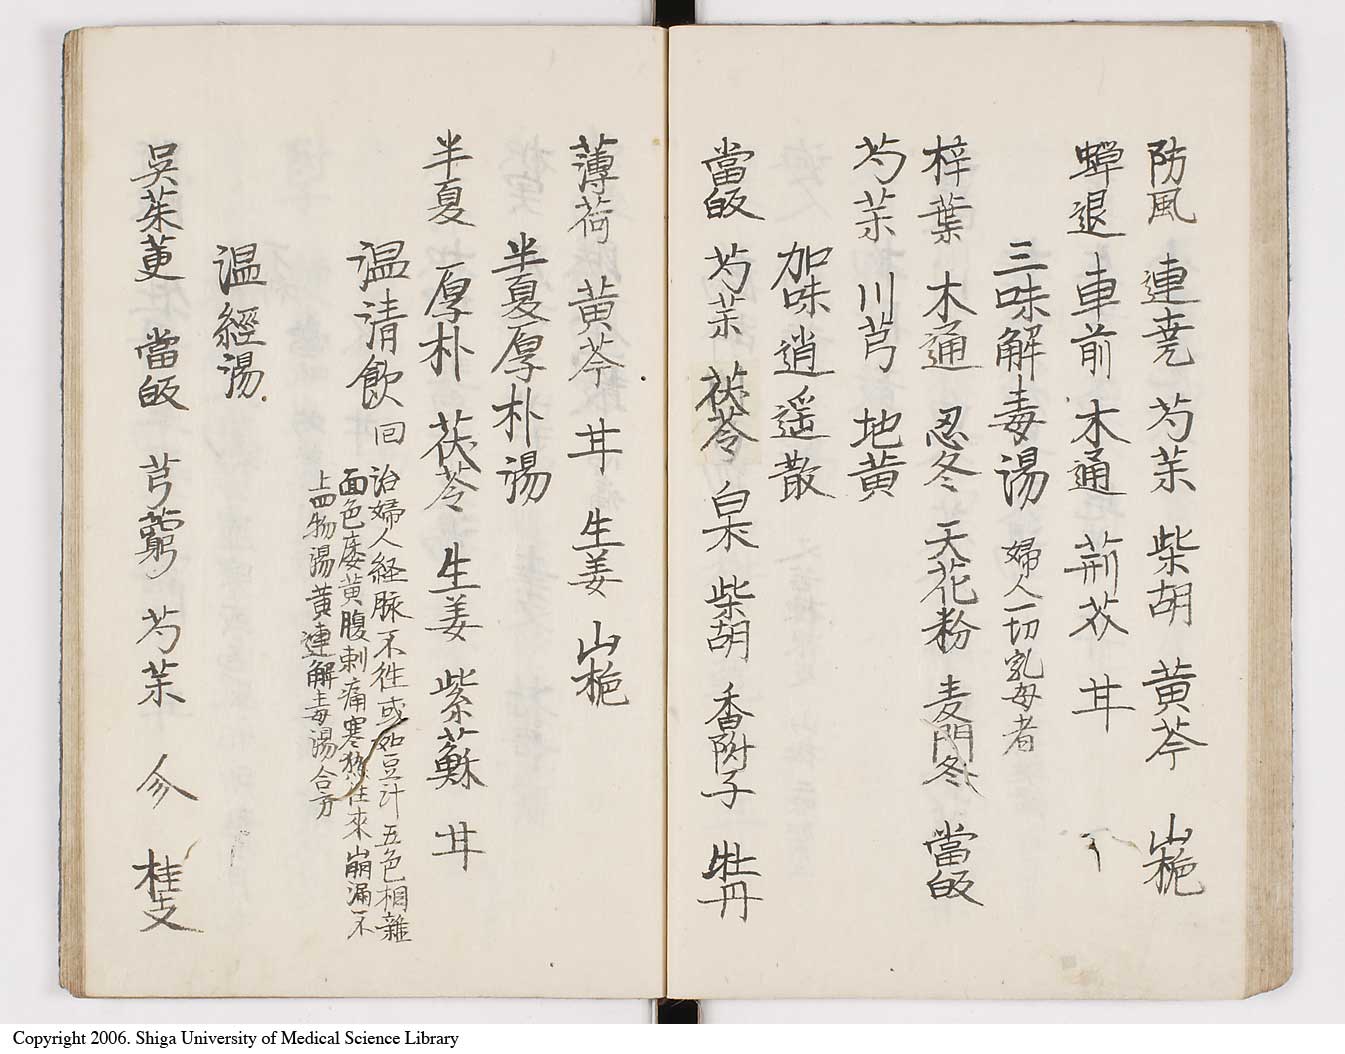 防風 連尭 芍茱 柴胡 黄芩 山梔
蟬退 車前 木通 荊芥 甘
三味解毒湯 婦人一切乳毎者
梓葉 木通 忍冬 天花粉 麦門冬 當皈
芍茱 川芎 地黄
加味逍遥散
當皈 芍茱 茯苓 白朮 柴胡 香附子 牡丹
薄荷 黄芩 甘 生姜 山梔
半夏厚朴湯
半夏 厚朴 茯苓 生姜 紫蘇 甘
温清飲 回 治婦人経脉不徃或如豆汁五色相雜
面色痿黄腹刺痛寒熱往來崩漏不
上四物湯黄連解毒湯合方
温經湯
呉茱萸 當皈 芎藭 芍茱 参 桂支
Copyright 2006. Shiga University of Medical Science Library